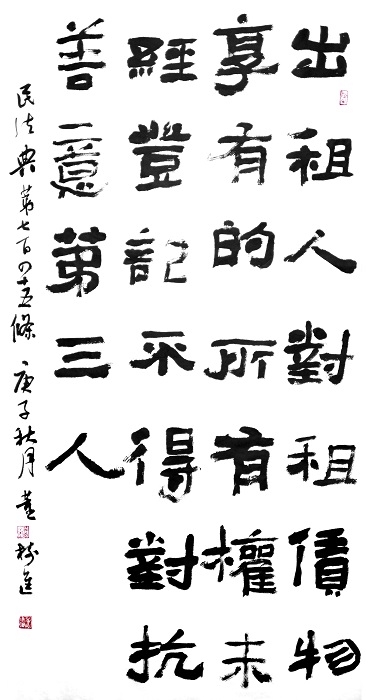 出租人對租賃物
享有的所有權未
經登記不得對抗
善意第三人
民法典第七百四十五條 庚子秋月